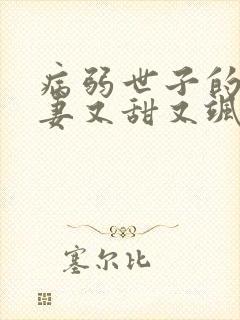 病弱世子的
妻又甜又飒
塞尔比